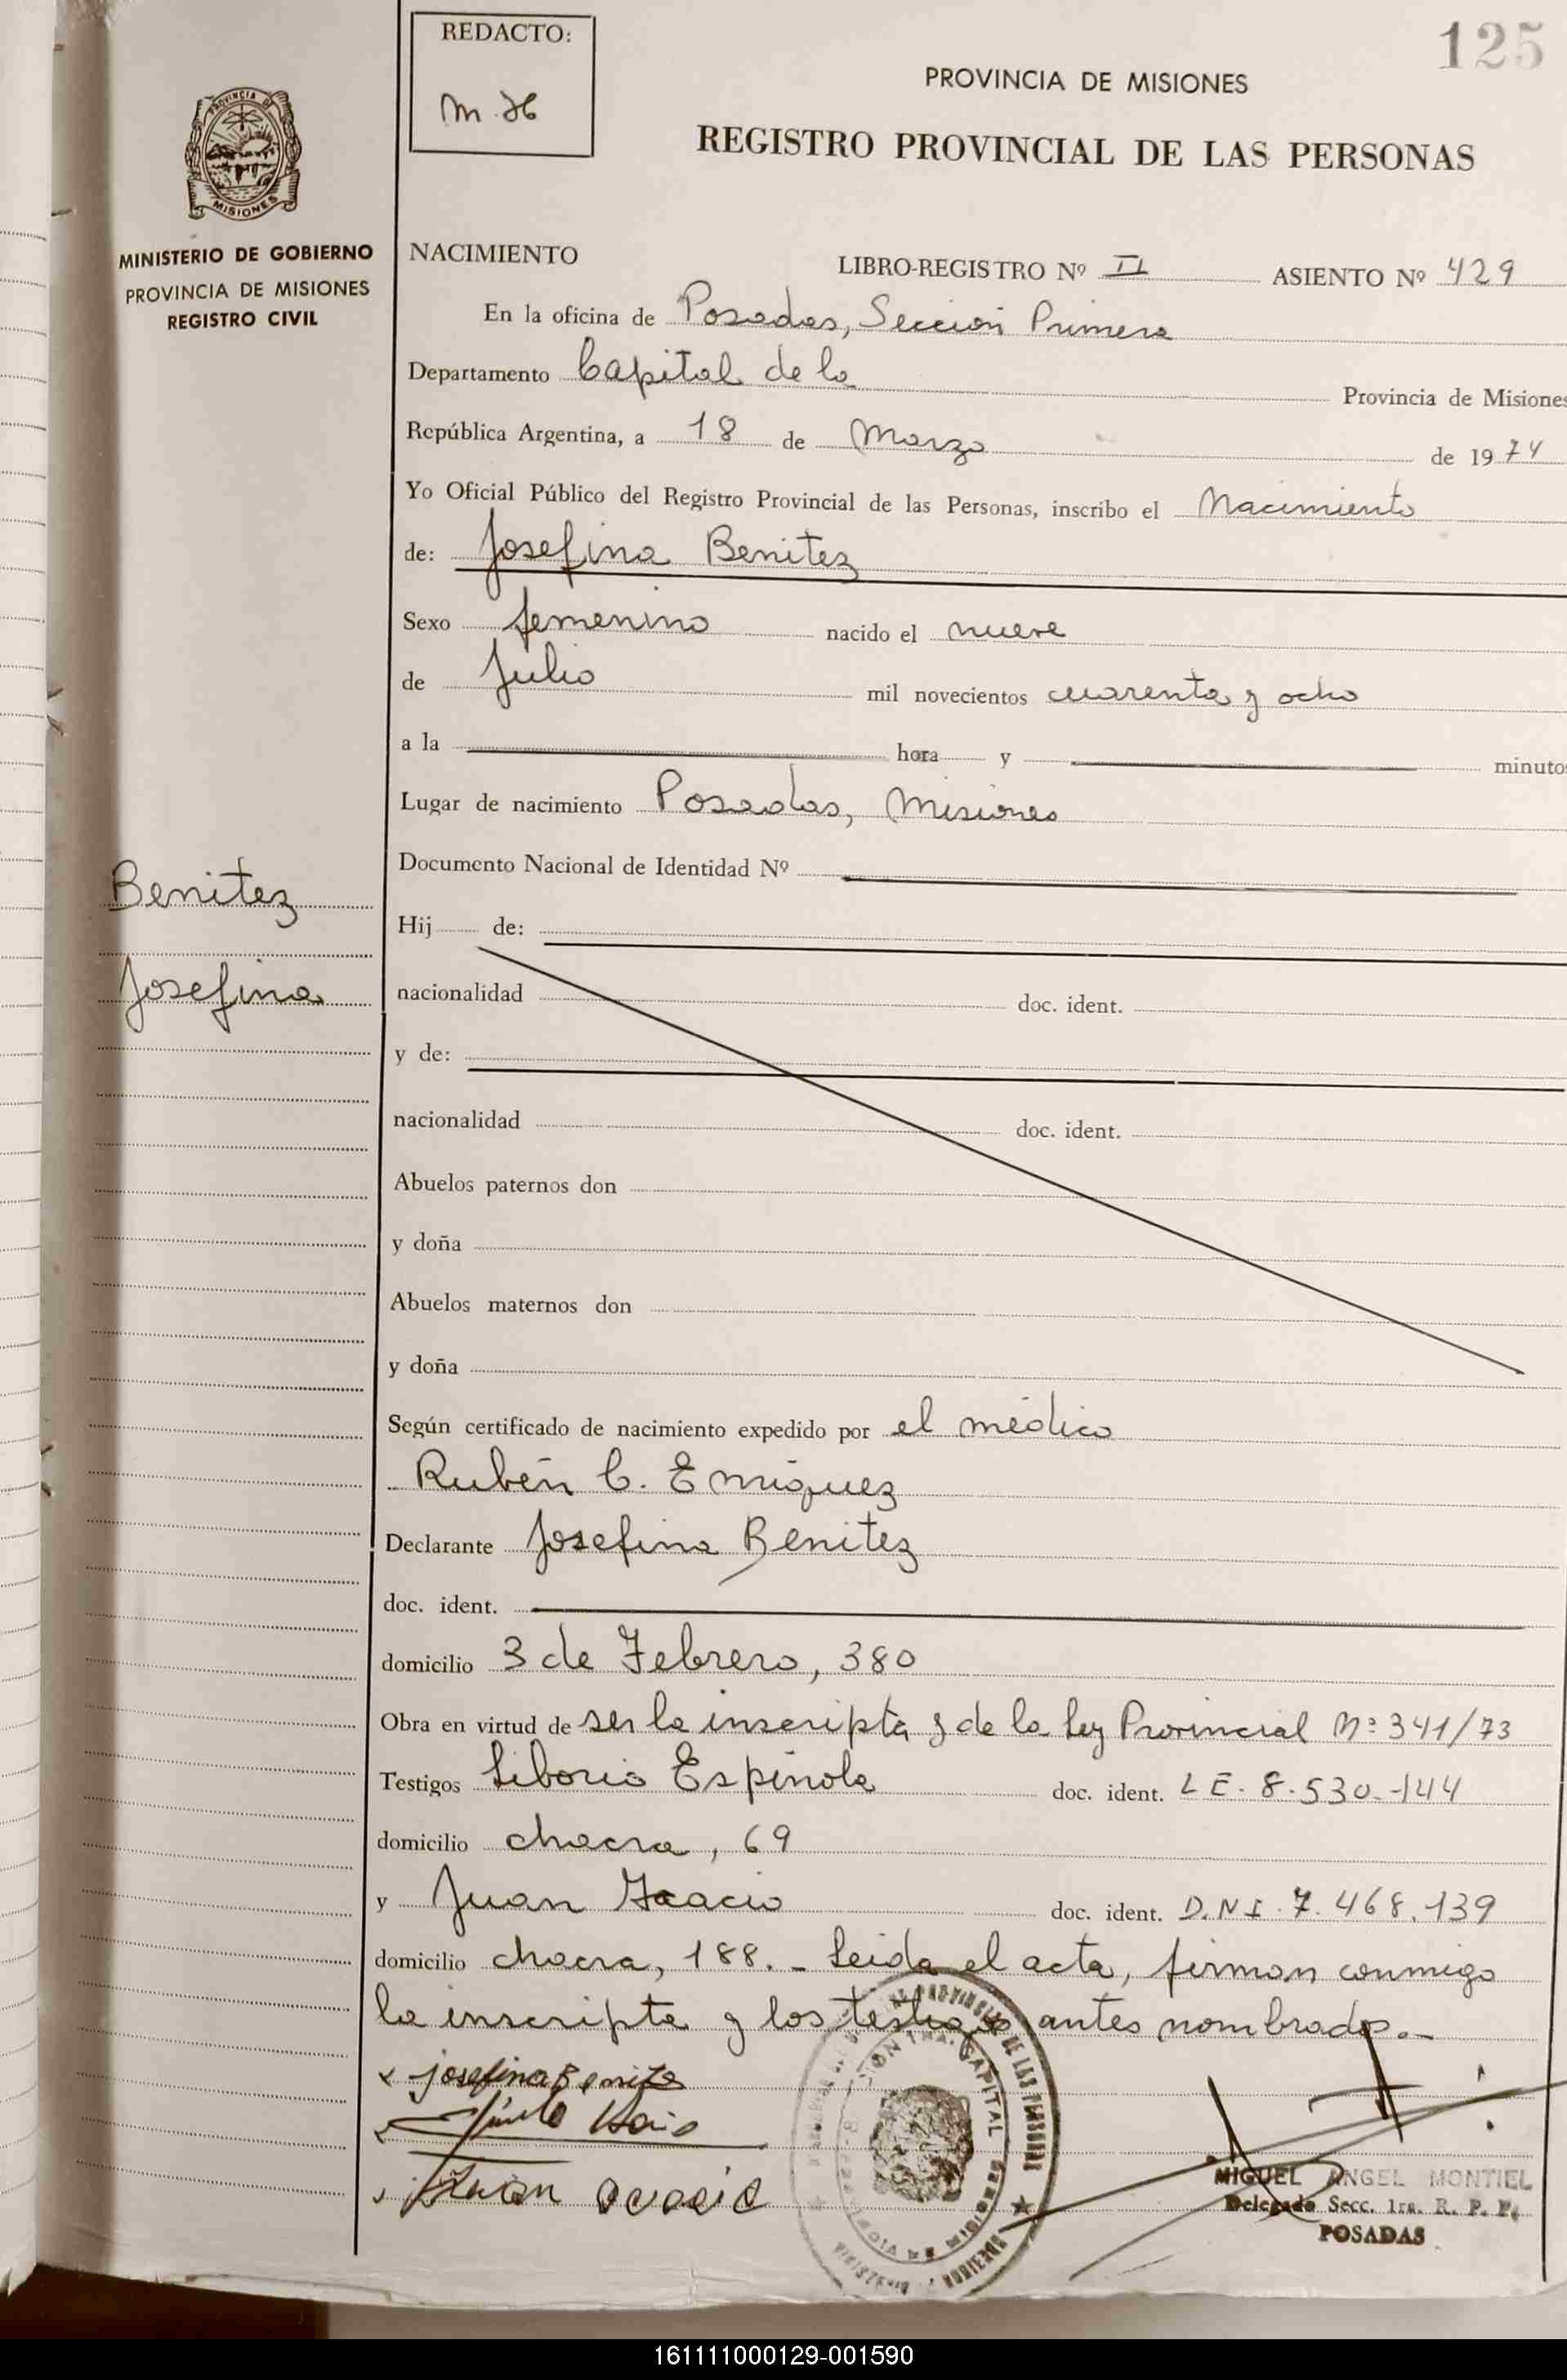 125
REDACTO:
PROVINCIA DE MISIONES
REGISTRO PROVINCIAL DE LAS PERSONAS
PROVINCIA DE
MISIONES
MINISTERIO DE GOBIERNO
PROVINCIA DE MISIONES
REGISTRO CIVIL
NACIMIENTO
LIBRO-REGISTRO Nº II ASIENTO Nº 429
En la oficina de Posadas, Sección Primera
Departamento Capital de la Provincia de Misiones
República Argentina, a 18 de Marzo de 1974
Yo Oficial Público del Registro Provincial de las Personas, inscribo el Nacimiento
de: Josefina Benitez
Sexo femenino nacido el nueve
de Julio mil novecientos cuarenta y ocho
a la hora y minuto
Lugar de nacimiento Posadas, Misiones
Documento Nacional de Identidad Nº
Benitez
Josefina
Hij de:
nacionalidad doc. ident.
y de:
nacionalidad doc. ident.
Abuelos paternos don
y doña
Abuelos maternos don
y doña
Según certificado de nacimiento expedido por el médico
Rubén C. Enriquez
Declarante Josefina Benitez
doc. ident.
domicilio 3 de Febrero, 380
Obra en virtud de ser la inscripta y de la Ley Provincial Nº 341/73
Testigos Liborio Espinola doc. ident. LE. 8.530.144
domicilio chacra, 69
y Juan Acacio doc. ident. D.N.I. 7.468.139
domicilio chacra, 188. - Leida el acta, firman conmigo
la inscripta y los testigos antes nombrados.-
josefina Benitez
Juan
MIGUEL ANGEL MONTIEL
Delegado Secc. 1ra. R. P. P.
POSADAS
161111000129-001590